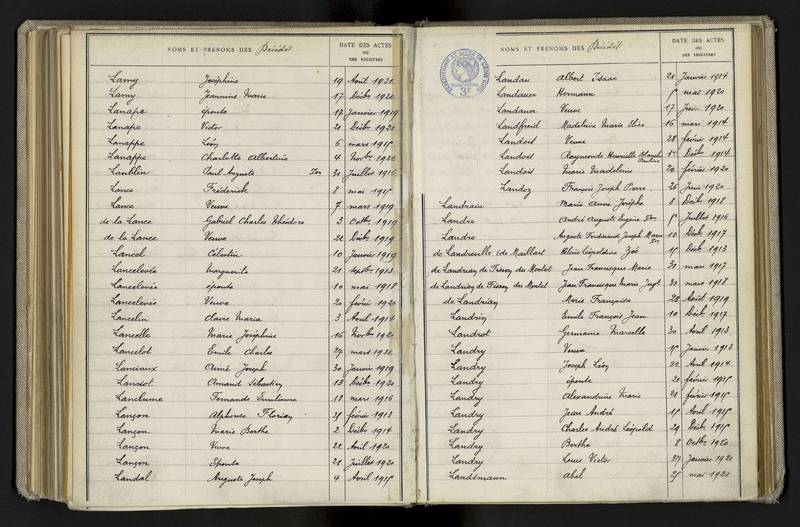 NOMS ET PRENOMS DES Décédés
DATE DES ACTES
OU
DES REGISTRES
Lamy Joséphine 19 Août 1922
Lamy Jeannine Marie 17 Décbr 1920
Lanape épouse 17 Janvier 1919
Lanape Victor 21 Décbr 1921
Lanappe Léon 6 mars 1915
Lanappe Charlotte Albertine 4 Novbr 1920
Lanblin Paul Auguste 30 Juillet 1916
Lance Fréderick 8 mai 1915
Lance Veuve 7 mars 1919
de la Lance Gabriel Charles Théodore 3 Octbr 1919
de la Lance Veuve 22 Décbr 1919
Lancel Célestin 10 Janvier 1919
Lancelevée Marguerite 21 Septbr 1913
Lancelevée épouse 10 mai 1918
Lancelevée Veuve 20 février 1920
Lancelin Claire Maria 3 Avril 1914
Lancelle Marie Joséphine 16 Novbr 1920
Lancelot Emile Charles 27 mars 1922
Lanciaux Aimé Joseph 30 Janvier 1919
Lanciot Armand Sébastien 13 Décbr 1920
Lanclume Fernande Emilienne 18 mars 1916
Lançon Alphonse Florian 25 février 1913
Lançon Marie Berthe 2 Décbr 1914
Lançon Veuve 22 Avril 1920
Lançon Epouse 21 Juillet 1920
Landal Auguste Joseph 4 Avril 1915
NOMS ET PRENOMS DES Décédés
DATE DES ACTES
OU
DES REGISTRES
3e
Landau Albert Isaac 21 Janvier 1914
Landauer Hermann 5 mai 1920
Landauer Veuve 17 Juin 1920
Landfreid Madeleine Marie 16 mars 1914
Landois Veuve 28 février 1914
Landois Raymonde Henriette Blanche 15 Décbr 1914
Landois Marie Madeleine 24 février 1920
Landoz François Joseph Pierre 26 Juin 1920
Landrain Marie Anne Josèphe 8 Décbr 1918
Landre André Auguste Eugène 5 Juillet 1916
Landre Auguste Ferdinand Joseph Marie 10 Décbr 1917
de Landreville (de Maillart Hélène Léopoldine Zoé 15 Décbr 1913
de Landrian du Montet Jean Francisque Marie 30 mars 1917
de Landrian du Montet Jean Francisque Marie 30 mars 1918
de Landrian Marie Françoise 28 Août 1919
Landrin Emile François Jean 10 Décbr 1917
Landrot Germaine Marcelle 30 Avril 1913
Landry Veuve 15 Janvier 1913
Landry Joseph Léon 22 Avril 1914
Landry épouse 21 février 1915
Landry Alexandrine Marie 21 février 1915
Landry Jean André 15 Avril 1915
Landry Charles André Léopold 29 Décbr 1915
Landry Berthe 8 Octbr 1920
Landry Louis Victor 27 Janvier 1921
Landsmann Abel 25 mai 1921